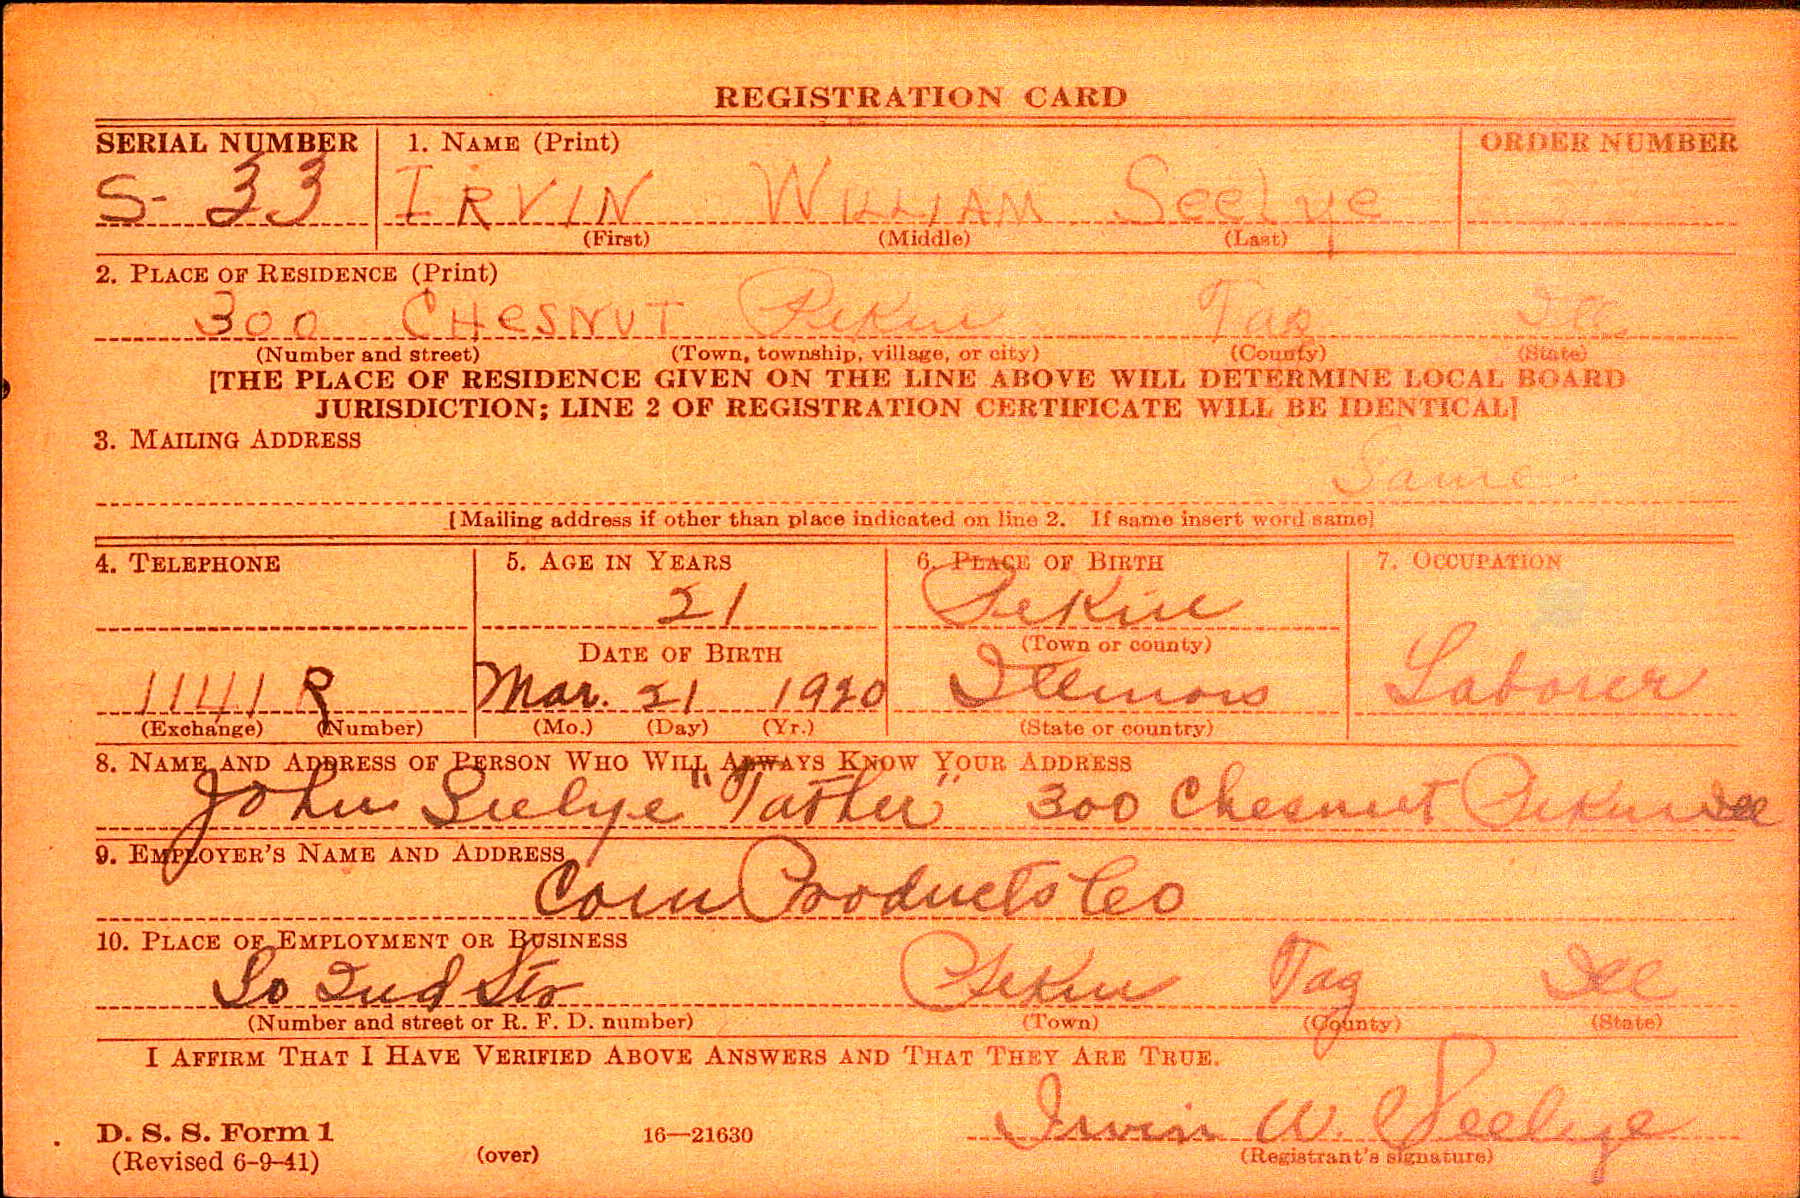 REGISTRATION CARD
SERIAL NUMBER 1. NAME (Print) ORDER NUMBER
S- 33 IRVIN WILLIAM Seelye
(First) (Middle) (Last)
2. PLACE OF RESIDENCE (Print)
300 CHESNUT Pekin Taz Ill
(Number and street) (Town, township, village, or city) (County) (State)
[THE PLACE OF RESIDENCE GIVEN ON THE LINE ABOVE WILL DETERMINE LOCAL BOARD
JURISDICTION; LINE 2 OF REGISTRATION CERTIFICATE WILL BE IDENTICAL]
3. MAILING ADDRESS
Same
[Mailing address if other than place indicated on line 2. If same insert word same]
4. TELEPHONE 5. AGE IN YEARS 6. PLACE OF BIRTH 7. OCCUPATION
21 Pekin
DATE OF BIRTH (Town or county)
1141 R Mar. 21 1920 Illinois Laborer
(Exchange) (Number) (Mo.) (Day) (Yr.) (State or country)
8. NAME AND ADDRESS OF PERSON WHO WILL ALWAYS KNOW YOUR ADDRESS
John Seelye "Father" 300 Chesnut Pekin Ill
9. EMPLOYER'S NAME AND ADDRESS
Corn Products Co
10. PLACE OF EMPLOYMENT OR BUSINESS
So 2nd Str Pekin Taz Ill
(Number and street or R. F. D. number) (Town) (County) (State)
I AFFIRM THAT I HAVE VERIFIED ABOVE ANSWERS AND THAT THEY ARE TRUE.
Irvin W. Seelye
D. S. S. Form 1 16—21630
(Revised 6-9-41) (over) (Registrant's signature)